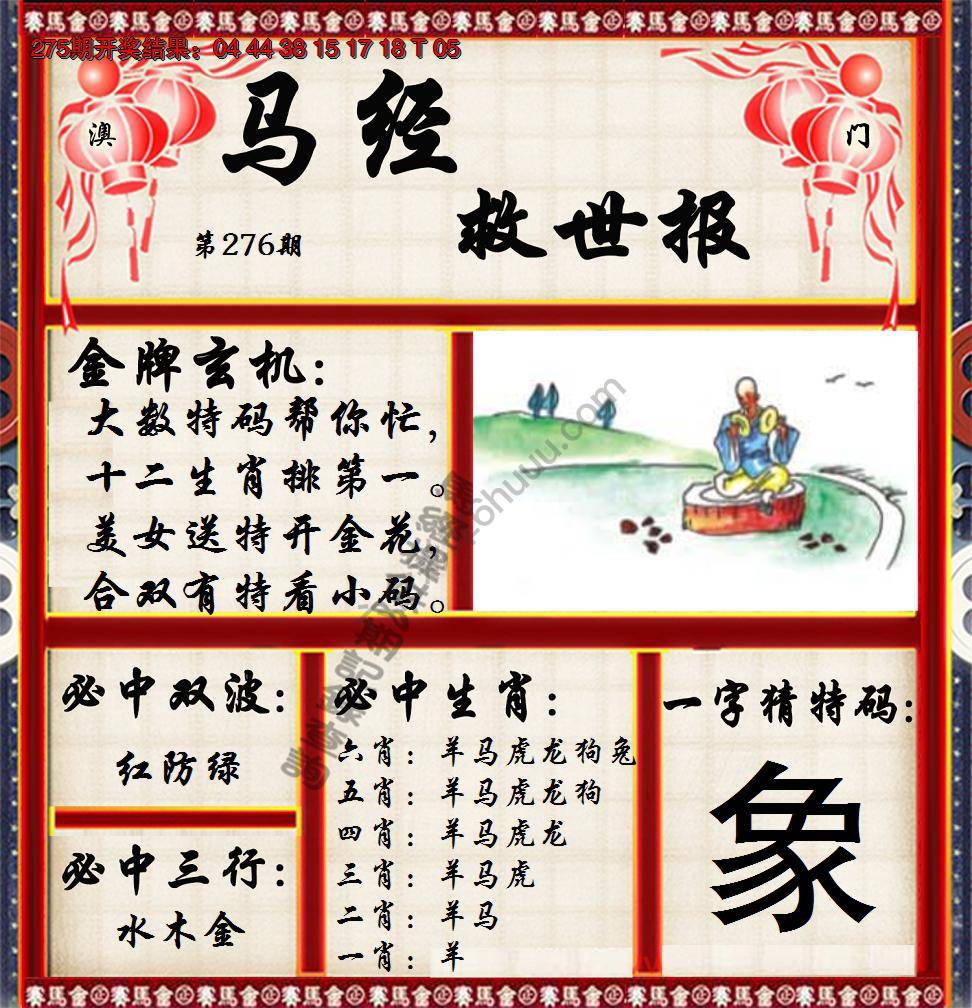 275期开奖结果：04 44 38 15 17 18 T 05
澳
门
马经
救世报
第276期
金牌玄机：
大数特码帮你忙，
十二生肖排第一。
美女送特开金花，
合双有特看小码。
必中双波：
红防绿
必中三行：
水木金
必中生肖：
六肖：羊马虎龙狗兔
五肖：羊马虎龙狗
四肖：羊马虎龙
三肖：羊马虎
二肖：羊马
一肖：羊
一字猜特码：
象